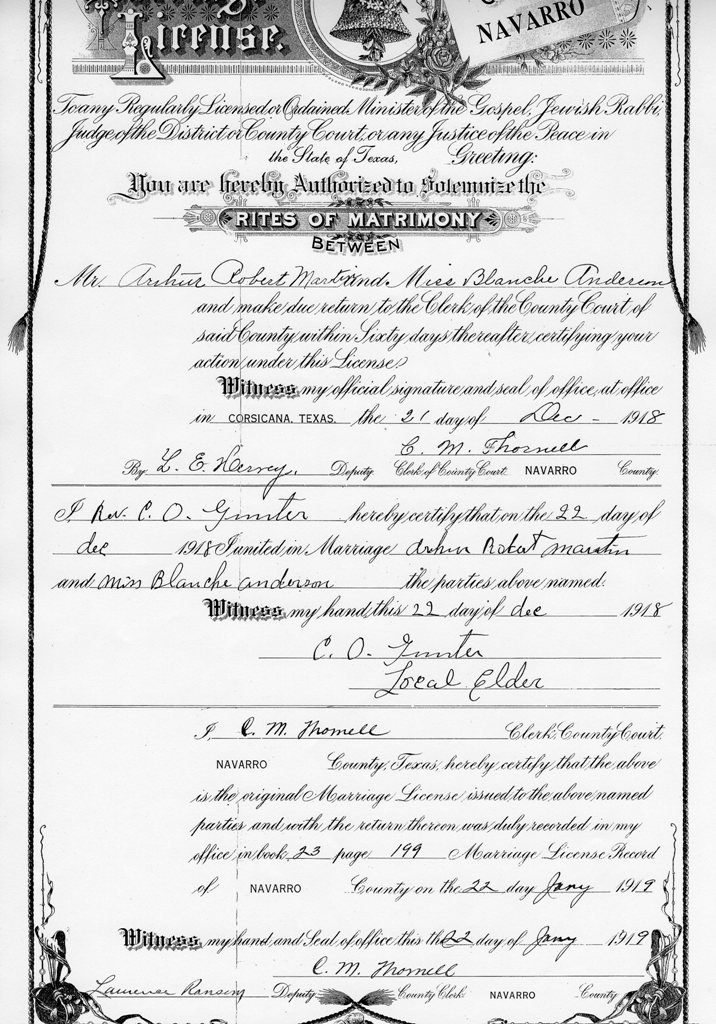 License.
NAVARRO
To any Regularly Licensed or Ordained Minister of the Gospel, Jewish Rabbi,
Judge of the District or County Court, or any Justice of the Peace in
the State of Texas, Greeting:
You are hereby Authorized to Solemnize the
RITES OF MATRIMONY
BETWEEN
Mr. Arthur Robert Martin and Miss Blanche Anderson
and make due return to the Clerk of the County Court of
said County within Sixty days thereafter, certifying your
action under this License.
Witness my official signature and seal of office, at office
in CORSICANA, TEXAS. the 21 day of Dec - 1918
C. M. Thornell
By L. E. Hervey. Deputy Clerk of County Court NAVARRO County.
I Rev. C. O. Gunter hereby certify that on the 22 day of
dec 1918 I united in Marriage Arthur Robert Martin
and Miss Blanche anderson the parties above named.
Witness my hand this 22 day of dec 1918
C. O. Gunter
Local Elder
I C. M. Thornell Clerk County Court,
NAVARRO County, Texas, hereby certify that the above
is the original Marriage License issued to the above named
parties and with the return thereon, was duly recorded in my
office in book 23 page 199 Marriage License Record
of NAVARRO County on the 22 day Jany 1919
Witness my hand and Seal of office this the 22 day of Jany 1919
C. M. Thornell
Laurence Ransom Deputy County Clerk NAVARRO County